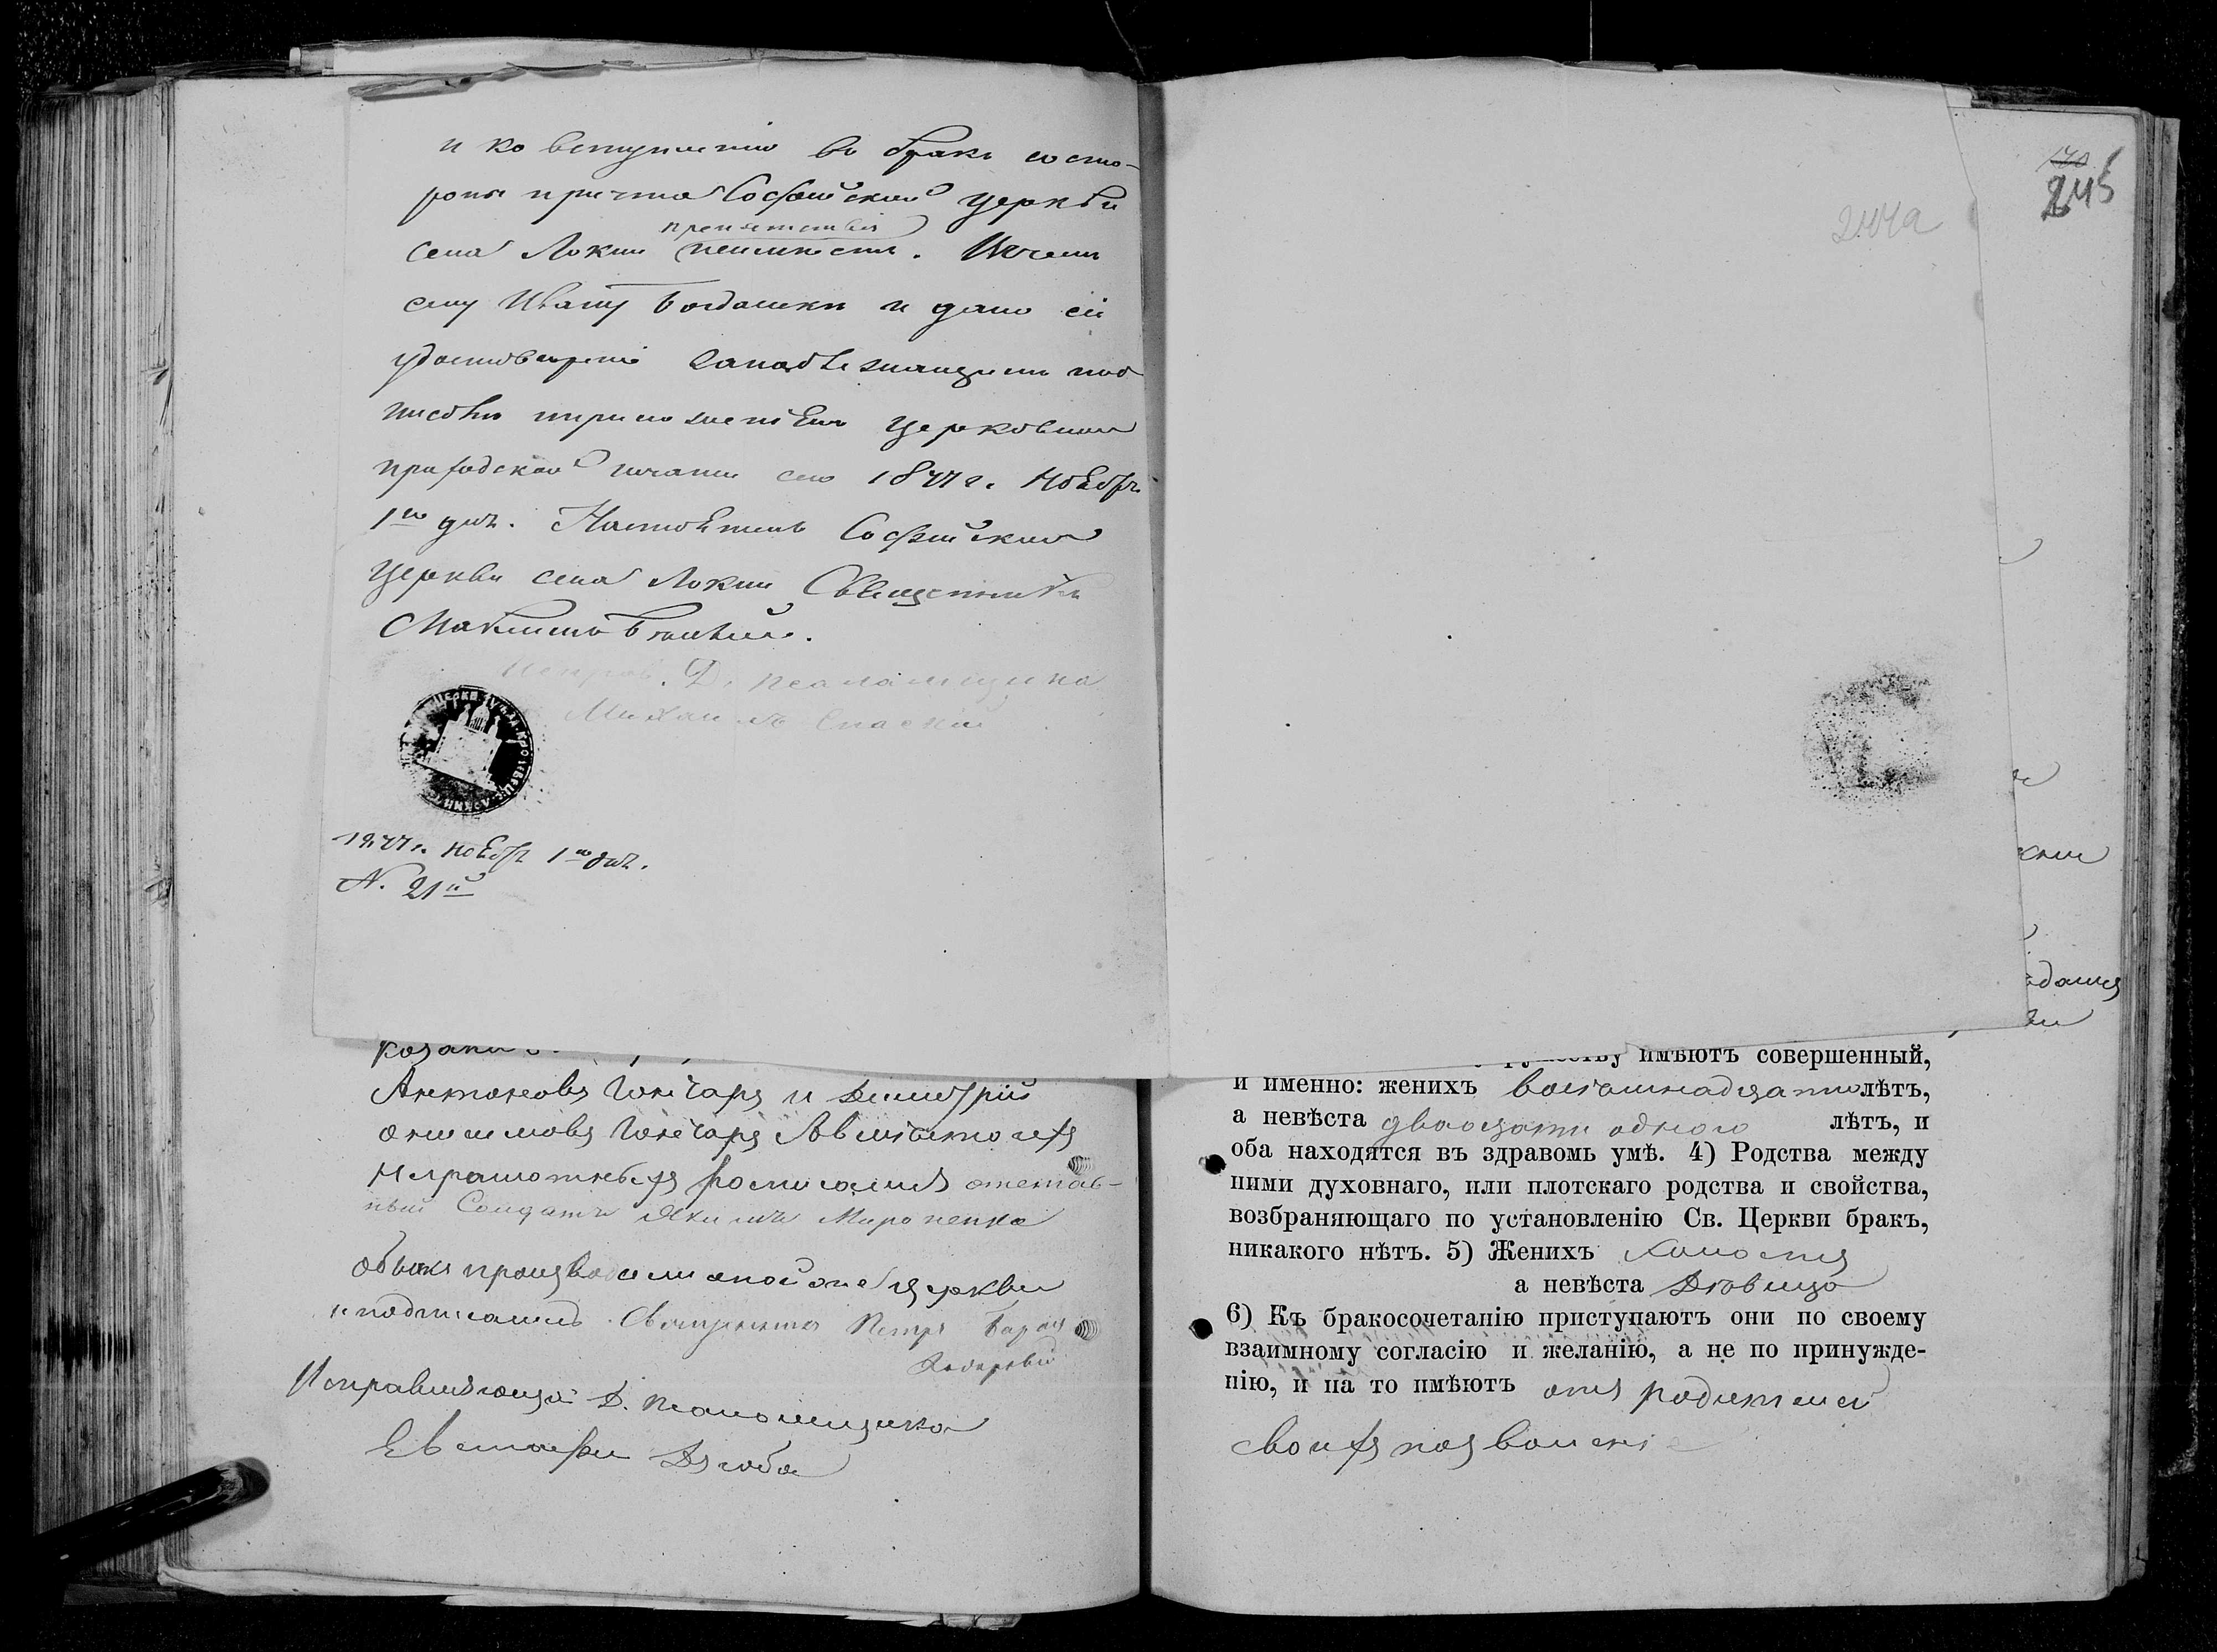 и ко вступленію въ бракъ со сто-
роны причта Софійской церкви
села Локни препятствія неимѣется. Въ чемъ
ему Ивану и дано сіе
удостовѣреніе за надлежащимъ под
писомъ приложеніемъ церковной
приходской печати сего 1877 г. Ноября
1го дня. Настоятель Софійской
церкви села Локни Священникъ
Максимъ
Исправ. Д. псаломщика
Михаилъ Спаскій
1877 г. Ноября 1го дня.
N. 21й
Антоновъ Гончаръ и Димитрій
Онисимовъ Гончаръ А вмѣсто ихъ
неграмотныхъ росписался отстав-
ный Солдатъ Якимъ Мироненко
Обыскъ производили оной церкви
и подписались Священникъ Петръ
Исправляющій Д. псаломщика
Евстафій Дзюба
244а
245
имѣютъ совершенный,
и именно: женихъ восемнадцати лѣтъ,
а невѣста двадцати одного лѣтъ, и
оба находятся въ здравомъ умѣ. 4) Родства между
ними духовнаго, или плотскаго родства и свойства,
возбраняющаго по установленію Св. Церкви бракъ,
никакого нѣтъ. 5) Женихъ холостъ
а невѣста Дѣвица
6) Къ бракосочетанію приступаютъ они по своему
взаимному согласію и желанію, а не по принужде-
нію, и на то имѣютъ отъ родителей
своихъ позволеніе